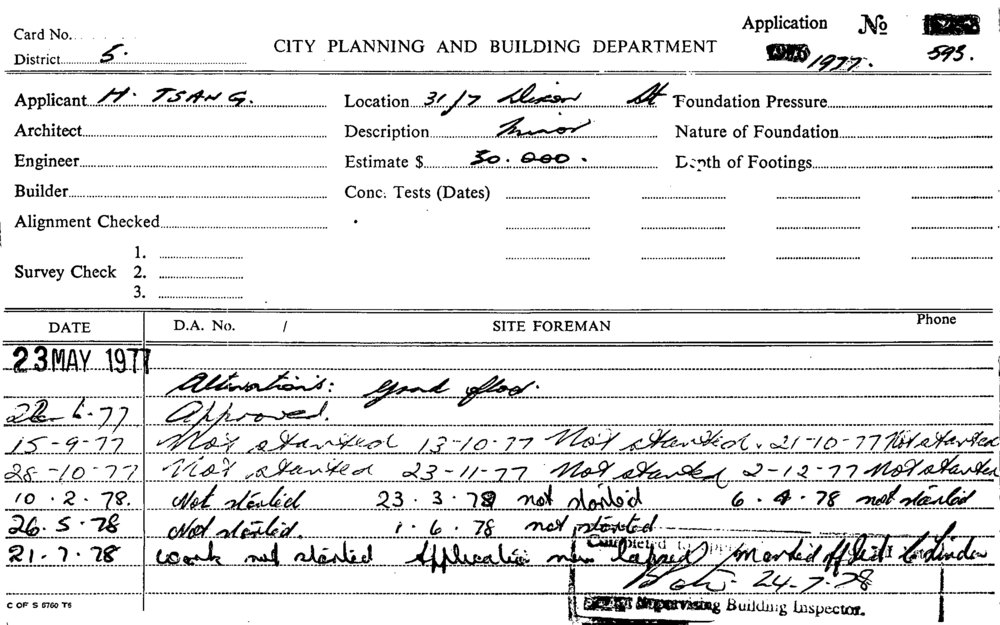 Card No.
District 5.
CITY PLANNING AND BUILDING DEPARTMENT
Application No
1977. 593.
Applicant H. TSANG. Location 31/7 Dixon St Foundation Pressure
Architect Description Minor Nature of Foundation
Engineer Estimate $ 30.000. Depth of Footings
Builder Conc. Tests (Dates)
Alignment Checked
Survey Check 1.
2.
3.
DATE D.A. No. / SITE FOREMAN Phone
23 MAY 1977
Alterations: Ground floor.
77 Approved.
15-9-77 Not started 13-10-77 Not started. 21-10-77 Not started
28-10-77 Not started 23-11-77 Not started 2-12-77 Not started
10.2.78. Not started 23.3.78 not started 6.4.78 not started
26.5.78 Not started. 1.6.78 not started
21.7.78 work not started Application now lapsed / marked off
24-7-78
Supervising Building Inspector.
C OF S 8760 T6